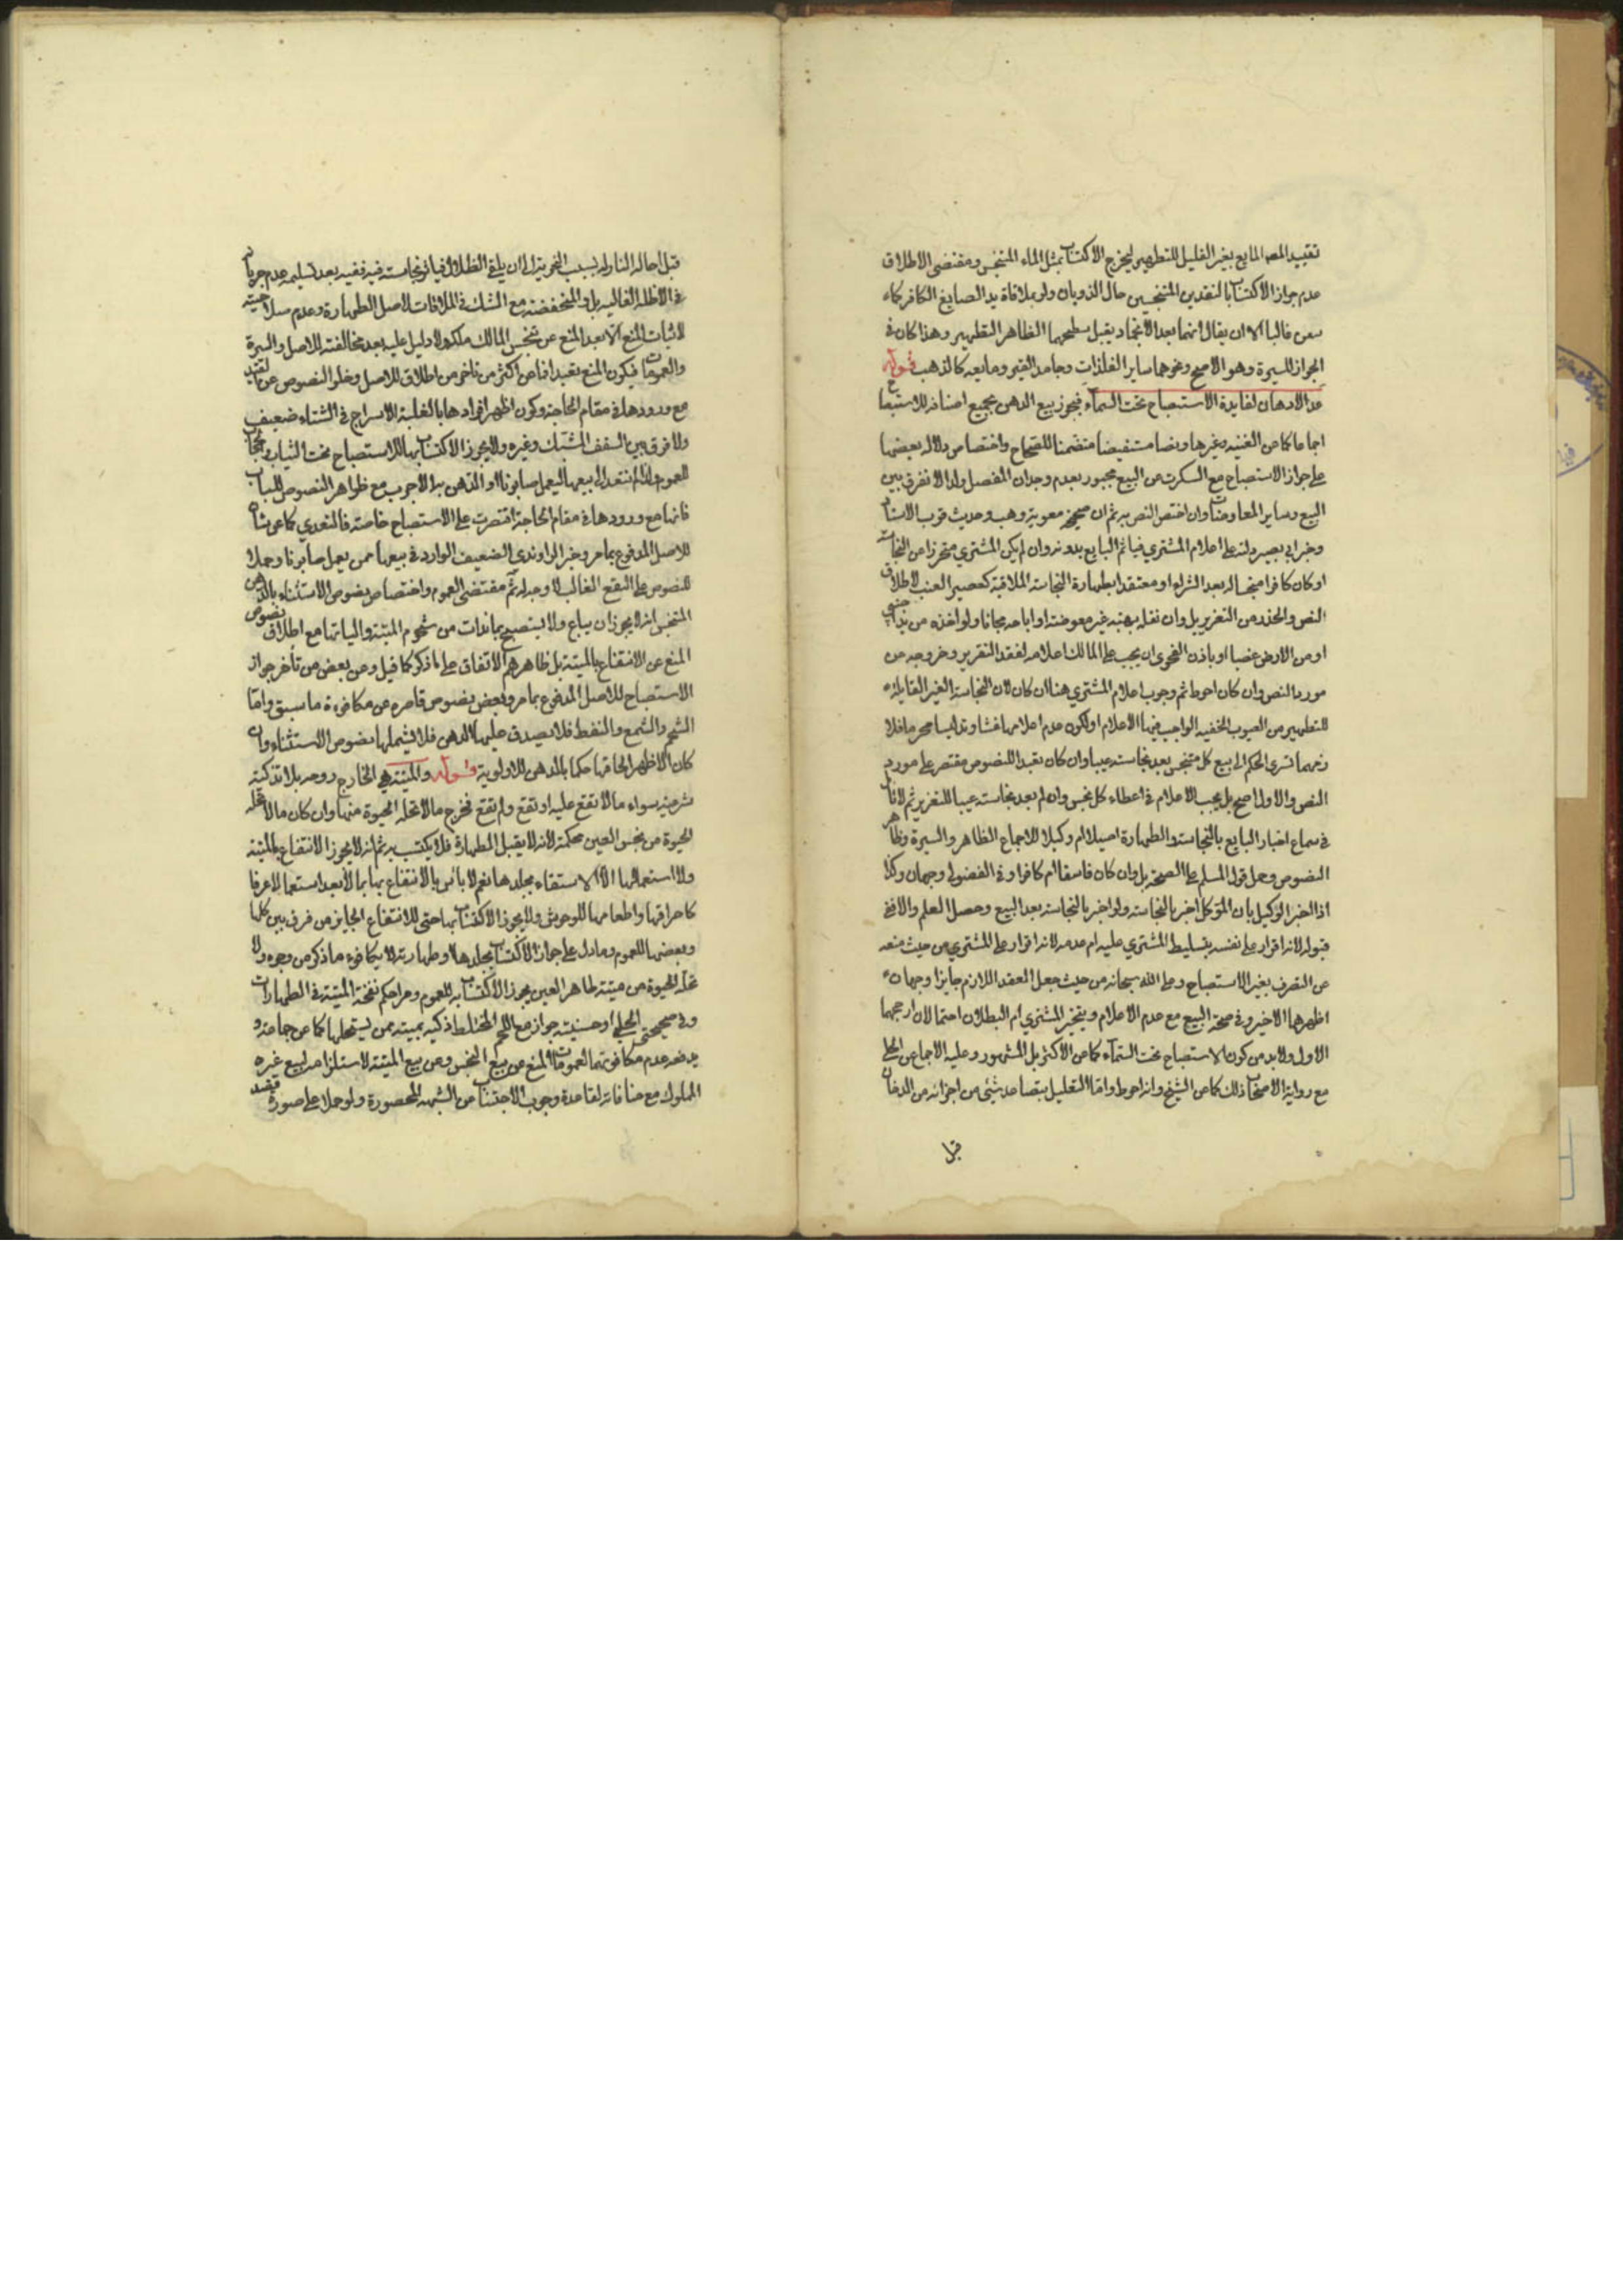 تقييد المص المايع بغير القابل للتطهير ليخرج الاكتساب بمثل الماء المتنجس ومقتضى الاطلاق
عدم جواز الاكتساب بالنقدين المتنجسين حال الذوبان ولو بملاقاة يد الصايغ الكافر كما
غالبا الا ان يقال انهما بعد الانجماد يقبل سطحهما الظاهر التطهير وهذا كان في
الجواز للسيرة وهو الاصح ونحوهما ساير الفلزات وجامد القير ومايعه كالذهب قوله
عدا الادهان لفايدة الاستصباح تحت السماء فيجوز بيع الدهن بجميع اصنافه للاستصباح
اجماعا كما عن الغنيه وغيرها ونصا مستفيضا متضمنا للصحاح واختصاص دلاله بعضها
على جواز الاستصباح مع السكوت عن البيع مجبور بعدم وجدان المفصل ولذا لا نفرق بين
البيع وساير المعاوضات وان اختص النص به ثم ان صحيحة معوية وهب وحديث قرب الاسناد
وخبر ابي بصير دلت على اعلام المشتري فياثم البايع بدونه وان لم يكن المشتري متحرزا عن النجاسات
او كان كافرا بعد الشراء او معتقدا بطهارة النجاسة الملاقية كعصير العنب لاطلاق
النص والحذر من التغرير بل وان نقله بهبة غير معوضة او اباحه مجانا ولو اخذه من يد اجنبي
او من الارض غصبا او باذن الفحوى ان يجب على المالك اعلامه لفقد التغرير وخروجه عن
مورد النص وان كان احوط ثم وجوب اعلام المشتري هنا ان كان لان النجاسة الغير القابلة
للتطهير من العيوب الخفيه الواجب فيها الاعلام او لكون عدم اعلامها غشا وتدليسا محرما فلا
تسرى الحكم الى بيع كل متنجس يعد نجاسته عيبا وان كان تعبدا للنصوص مقتصر على مورد
النص والاول اصح بل يجب الاعلام في اعطاء كل نجس وان لم يعد نجاسته عيبا للتغرير ثم لا
في سماع اخبار البايع بالنجاسة والطهارة اصيلا ام وكيلا للاجماع الظاهر والسيرة وظاهر
النصوص وحمل قول المسلم على الصحة بل وان كان فاسقا ام كافرا وفي الفضولي وجهان وكذا
اذا اخبر الوكيل بان الموكل اخبر بالنجاسة ولو اخبر بالنجاسة بعد البيع وحصل العلم والا ففي
قبوله لانه اقرار على نفسه بتسليط المشتري عليه ام عدمه لانه اقرار على المشتري من حيث منعه
عن التصرف بغير الاستصباح وعلى الله سبحانه من حيث جعل العقد اللازم جايزا وجهان
اظهرهما الاخير وفي صحة البيع مع عدم الاعلام ويتخير المشتري ام البطلان احتمالان ارجحهما
الاول ولابد من كون الاستصباح تحت السماء كما عن الاكثر بل المشهور وعليه الاجماع عن الحلي
مع رواية الاصحاب ذلك كما عن الشيخ وانه احوط واما التعليل بتصاعد شيئ من اجزائه من الدخان
قبل
قبل احاله النار له بسبب السخونة الى ان يلقى الظلال فياثر نجاسته فيه ففيه بعد تسليمه عدم جريانه
في الاظلة العالية بل والمنخفضة مع الشك في الملاقات لاصل الطهارة وعدم صلاحيته
لاثبات المنع الا بعد المنع عن تنجس المالك ملكه ولا دليل عليه بعد مخالفته للاصل والسيرة
والعمومات فيكون المنع تعبدا اكثر من تاخر من اطلاق للاصل وخلو النصوص عن تقييد
مع ورودها في مقام الحاجة وكون اظهر افرادها بالغلبة الاسراج في الشتاء ضعيف
ولا فرق بين السقف المشتبك وغيره ولا يجوز الاكتساب بها للاستصباح تحت الثياب
للعموم ولذا لم نتعد الى بيعها ليعمل صابونا او الدهن به الاجرب مع ظواهر النصوص للباب
فانها مع ورودها في مقام الحاجة اقتصرت على الاستصباح خاصة فالتعدي كما عن
للاصل المدفوع بما مر وخبر الراوندي الضعيف الوارد في بيعها ممن يعمل صابونا وحملا
للنصوص على النفع الغالب لا وجه له ثم مقتضى العموم واختصاص نصوص الاستثناء بالدهن
المتنجس انه لا يجوز ان يباع ولا يستصبح بما ذاب من شحوم الميتة والياتها مع اطلاق نصوص
المنع عن الانتفاع بالميتة بل ظاهرهم الاتفاق على ما ذكر كما قيل وعن بعض من تأخر جواز
الاستصباح للاصل المدفوع بما مر ولبعض نصوص قاصره عن مكافوءة ما سبق واما
الشحم والشمع والنفط فلا يصدق عليها الدهن فلا يشملها نصوص الاستثناء وان
كان الاظهر الحاقها حكما بالدهن للاولوية قوله والميتة هي الخارج روحه بلا تذكية
شرعية سواء مالا نفع عليه او تقع ولم تقع فخرج مالا تحله الحيوة منها وان كان مالا تحله
الحيوة من نجس العين محكمة لانه لا يقبل الطهارة فلا يكتسب به ثم انه لا يجوز الانتفاع بالميتة
ولا استعمالها الا الاستقاء بجلدها نعم لا باس بالانتفاع بها بما لا يعد استعمالا عرفا
كاحراقها واطعامها للوحوش ولا يجوز الاكتساب بها حتى للانتفاع الجايز من فرق بين كلها
وبعضها للعموم وما دل على جواز الاكتساب بجلدها او طهارته لا يكافوء ما ذكر من وجوه ولا
تحله الحيوة من ميتة طاهر العين يجوز الاكتساب به للعموم ومر احكم الميتة في الطهارات
وفي صحيحتي الحلبي او حسنته جواز مع اللحم المختلط ذكيه بميته ممن يستحلها كما عن جماعة و
عدم مكافوتهما لعمومات المنع من بيع النجس وعن بيع الميتة لاستلزامه لبيع غيره
المملوك مع منافاته لقاعدة وجوب الاجتناب من الشبهة المحصورة ولو حملا على صورة قصد